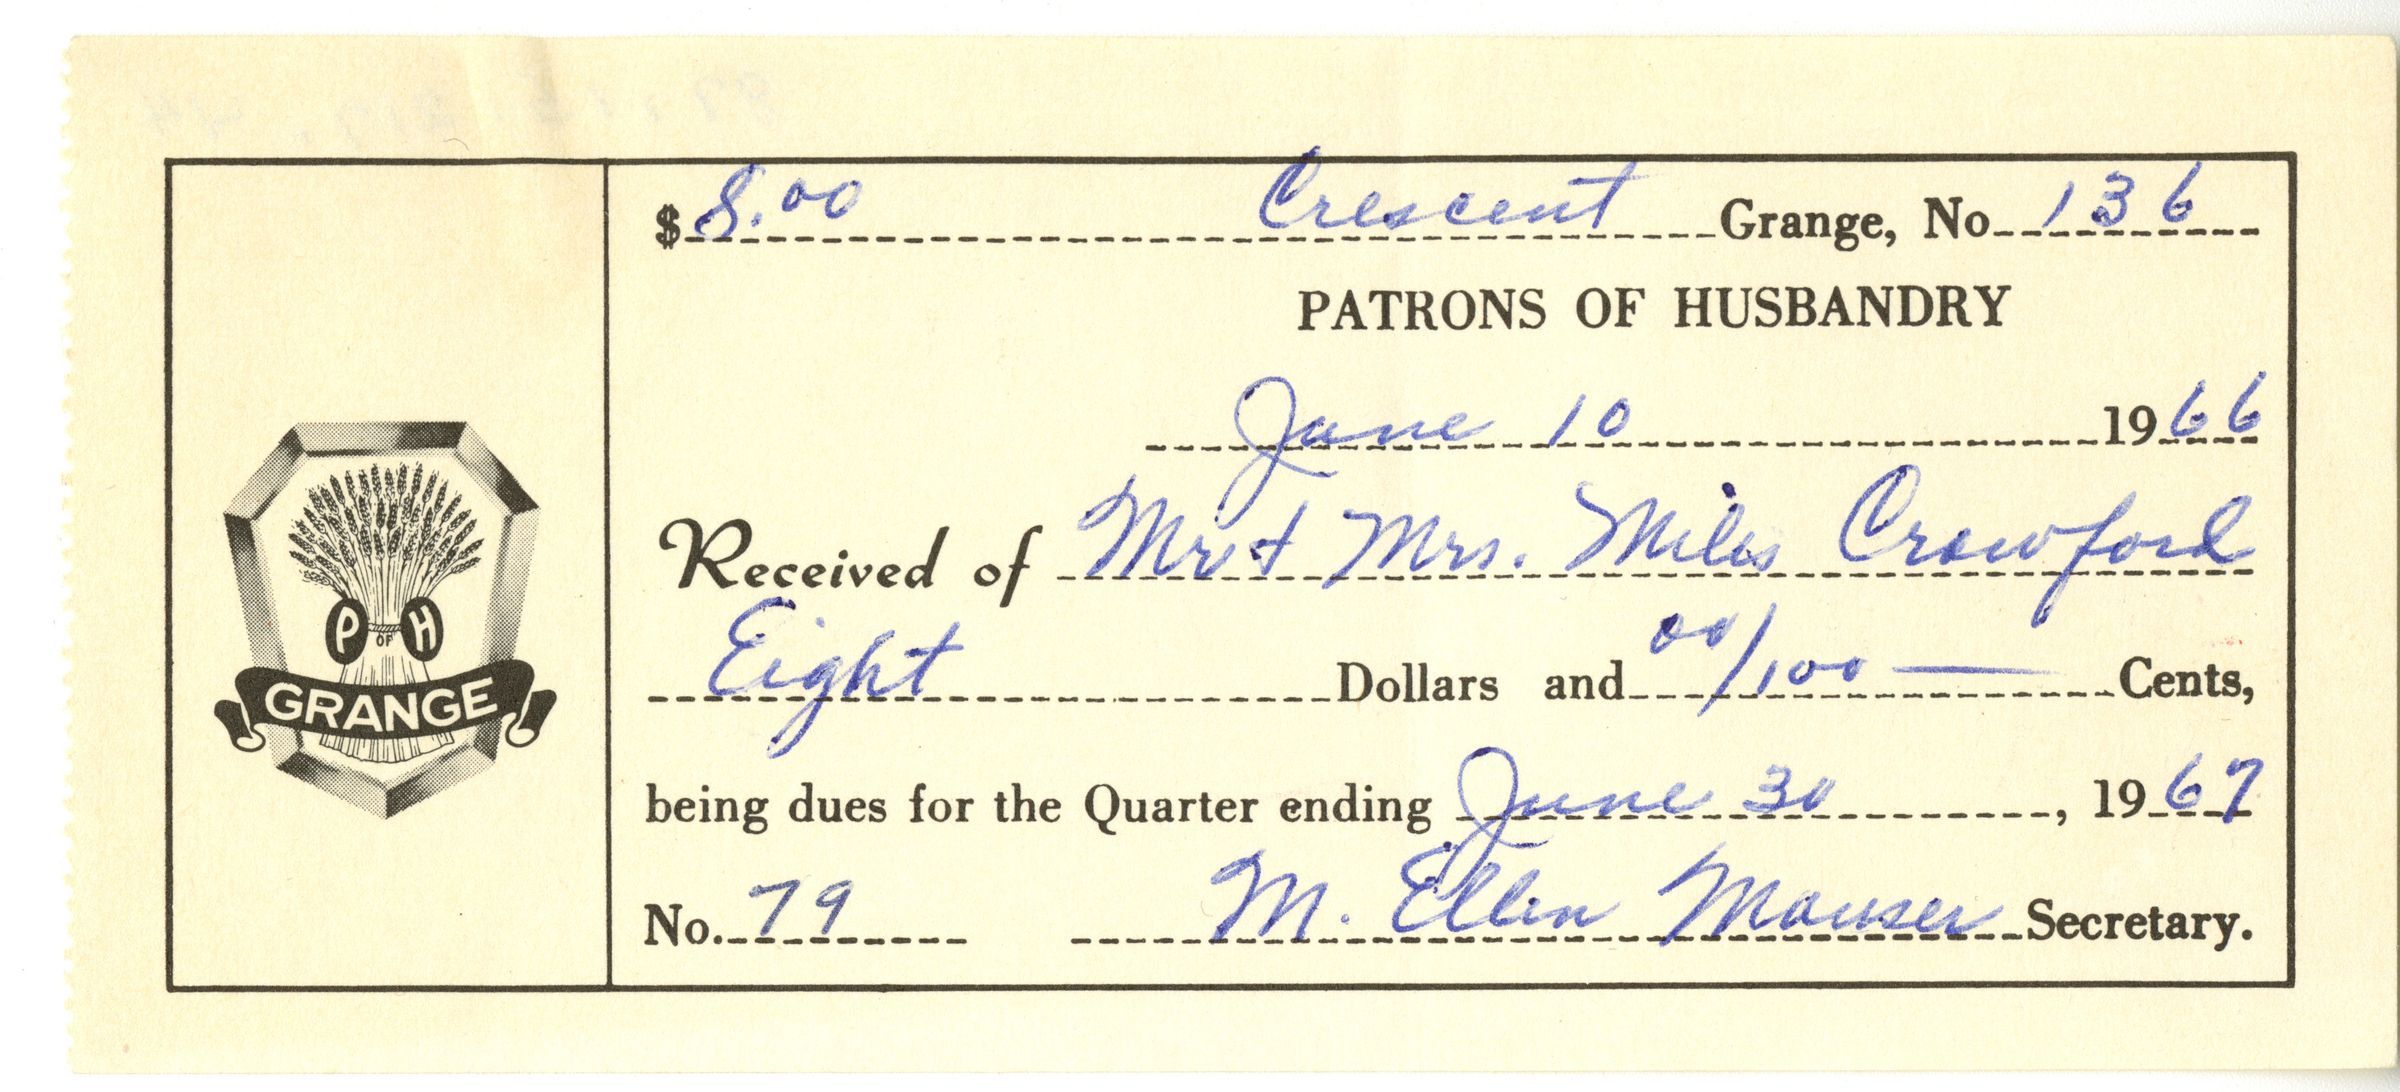 $ 8.00 Crescent Grange, No 136
PATRONS OF HUSBANDRY
June 10 1966
Received of Mr & Mrs. Miles Crawford
Eight Dollars and 00/100 — Cents,
being dues for the Quarter ending June 30, 1967
No. 79 M. Ellen Mauser Secretary.
P OF H
GRANGE